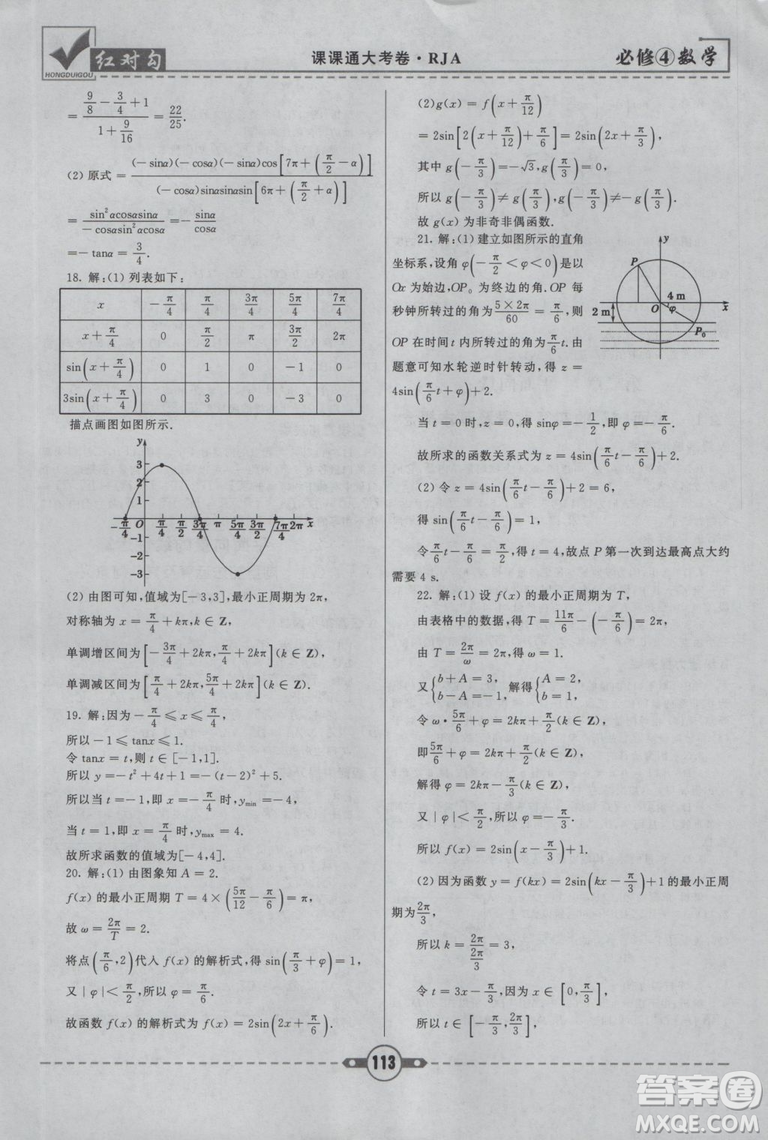 红对勾
HONGDUIGOU
课课通大考卷·RJA
必修④数学
=(9/8-3/4+1)/(1+9/16)=22/25.
(2)原式=(-sinα)(-cosα)(-sinα)cos[7π+(π/2-α)]/(-cosα)sinαsinαsin[6π+(π/2+α)]
=sin²αcosαsinα/-cosαsin²αcosα=-sinα/cosα
=-tanα=3/4.
18. 解:(1) 列表如下:
x -π/4 π/4 3π/4 5π/4 7π/4
x+π/4 0 π/2 π 3π/2 2π
sin(x+π/4) 0 1 0 -1 0
3sin(x+π/4) 0 3 0 -3 0
描点画图如图所示.
y
3
2
1
-π/4 O π/4 π/2 3π/4 π 5π/4 3π/2 7π/4 2π x
-1
-2
-3
(2) 由图可知,值域为[-3,3],最小正周期为 2π,
对称轴为 x=π/4+kπ,k∈Z,
单调增区间为[-3π/4+2kπ,π/4+2kπ](k∈Z),
单调减区间为[π/4+2kπ,5π/4+2kπ](k∈Z).
19. 解:因为-π/4≤x≤π/4,
所以-1≤tanx≤1.
令 tanx=t,则 t∈[-1,1].
所以 y=-t²+4t+1=-(t-2)²+5.
所以当 t=-1,即 x=-π/4时,ymin=-4,
当 t=1,即 x=π/4时,ymax=4.
故所求函数的值域为[-4,4].
20. 解:(1) 由图象知 A=2.
f(x) 的最小正周期 T=4×(5π/12-π/6)=π,
故 ω=2π/T=2.
将点(π/6,2)代入 f(x) 的解析式,得 sin(π/3+φ)=1,
又|φ|<π/2,所以 φ=π/6.
故函数 f(x) 的解析式为 f(x)=2sin(2x+π/6).
(2)g(x)=f(x+π/12)
=2sin[2(x+π/12)+π/6]=2sin(2x+π/3).
其中 g(-π/3)=-√3,g(π/3)=0,
所以 g(-π/3)≠g(π/3),g(-π/3)≠-g(π/3).
故 g(x) 为非奇非偶函数.
21. 解:(1) 建立如图所示的直角
坐标系,设角 φ(-π/2<φ<0)是以
Ox 为始边,OP₀ 为终边的角. OP 每
秒钟所转过的角为5×2π/60=π/6,则
OP 在时间 t 内所转过的角为π/6t.由
题意可知水轮逆时针转动,得 z=
4sin(π/6t+φ)+2.
y
P
4 m
O φ x
2 m
P₀
当 t=0时,z=0,得 sinφ=-1/2,即 φ=-π/6.
故所求的函数关系式为 z=4sin(π/6t-π/6)+2.
(2) 令 z=4sin(π/6t-π/6)+2=6,
得 sin(π/6t-π/6)=1,
令π/6t-π/6=π/2,得 t=4,故点 P 第一次到达最高点大约
需要 4 s.
22. 解:(1) 设 f(x) 的最小正周期为 T,
由表格中的数据,得 T=11π/6-(-π/6)=2π,
由 T=2π/ω=2π,得 ω=1.
又{b+A=3, b-A=-1, 解得{A=2, b=1.
令 ω·5π/6+φ=π/2+2kπ(k∈Z),
即5π/6+φ=π/2+2kπ(k∈Z),
解得 φ=-π/3+2kπ(k∈Z),
又|φ|<π/2,所以 φ=-π/3.
所以 f(x)=2sin(x-π/3)+1.
(2) 因为函数 y=f(kx)=2sin(kx-π/3)+1 的最小正周
期为2π/3,
所以 k=2π/(2π/3)=3,
令 t=3x-π/3,因为 x∈[0,π/3],
所以 t∈[-π/3,2π/3],
113
答案圈
MXQE.COM